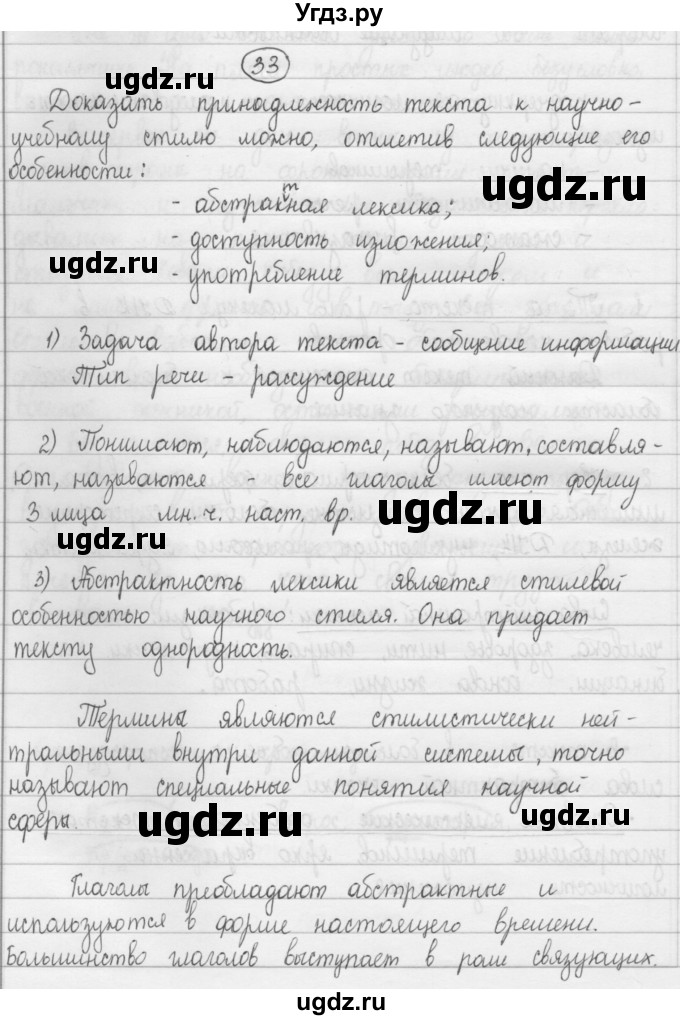 Угдз.ру
33
ugdz.ru
Доказать принадлежность текста к научно-
учебному стилю можно, отметив следующие его
особенности:
ugdz.ru
т
- абстракная лексика;
- доступность изложения;
ugdz.ru
- употребление терминов.
1) Задача автора текста - сообщение информации
Тип речи - рассуждение
2) Понимают, наблюдаются, называют, составля-
ют, называются - все глаголы имеют форму
3 лица мн.ч. наст. вр.
ugdz.ru
ugdz.ru
3) Абстрактность лексики является стилевой
особенностью научного стиля. Она придает
тексту однородность.
Термины являются стилистически ней-
тральными внутри данной системы, точно
называют специальные понятия научной
сферы.
ugdz.ru
ugdz.ru
Глаголы преобладают абстрактные и
используются в форме настоящего времени.
Большинство глаголов выступает в роли связующих.
ugdz.ru